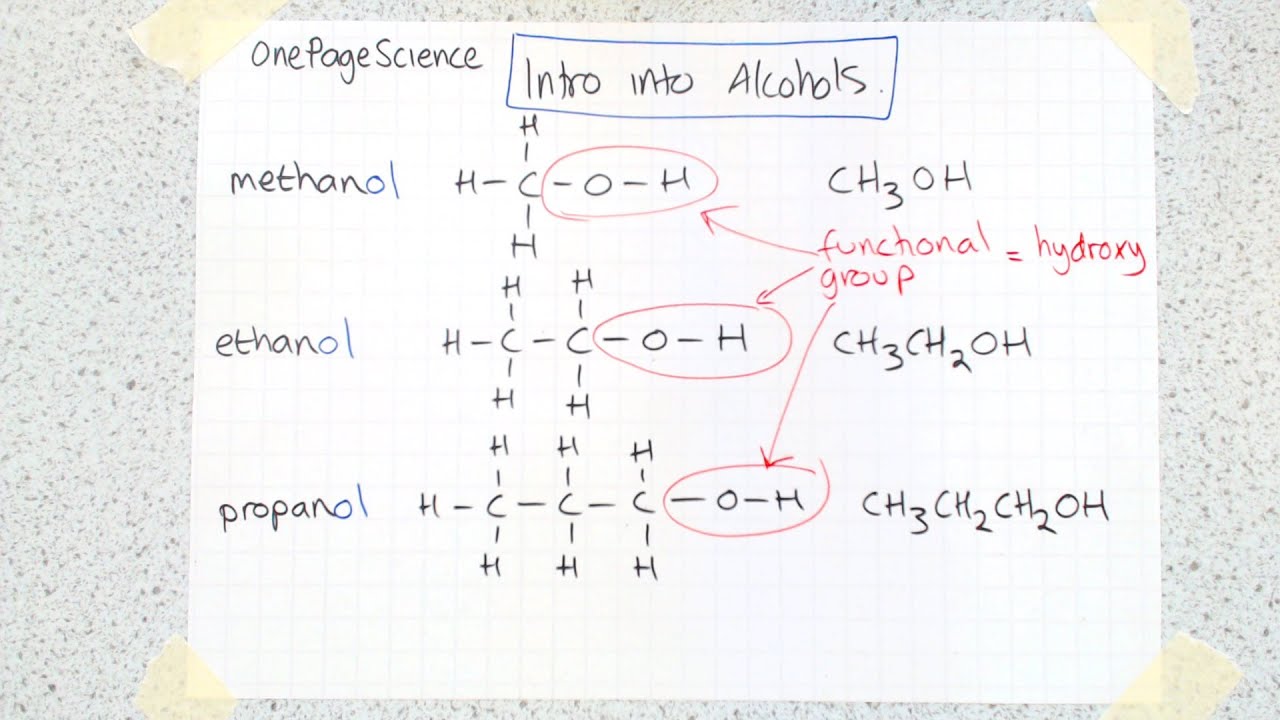 OnePageScience
Intro into Alcohols.
H
methanol H–C–O–H CH3OH
H
functional group = hydroxy
H H
ethanol H–C–C–O–H CH3CH2OH
H H
H H H
propanol H–C–C–C–O–H CH3CH2CH2OH
H H H